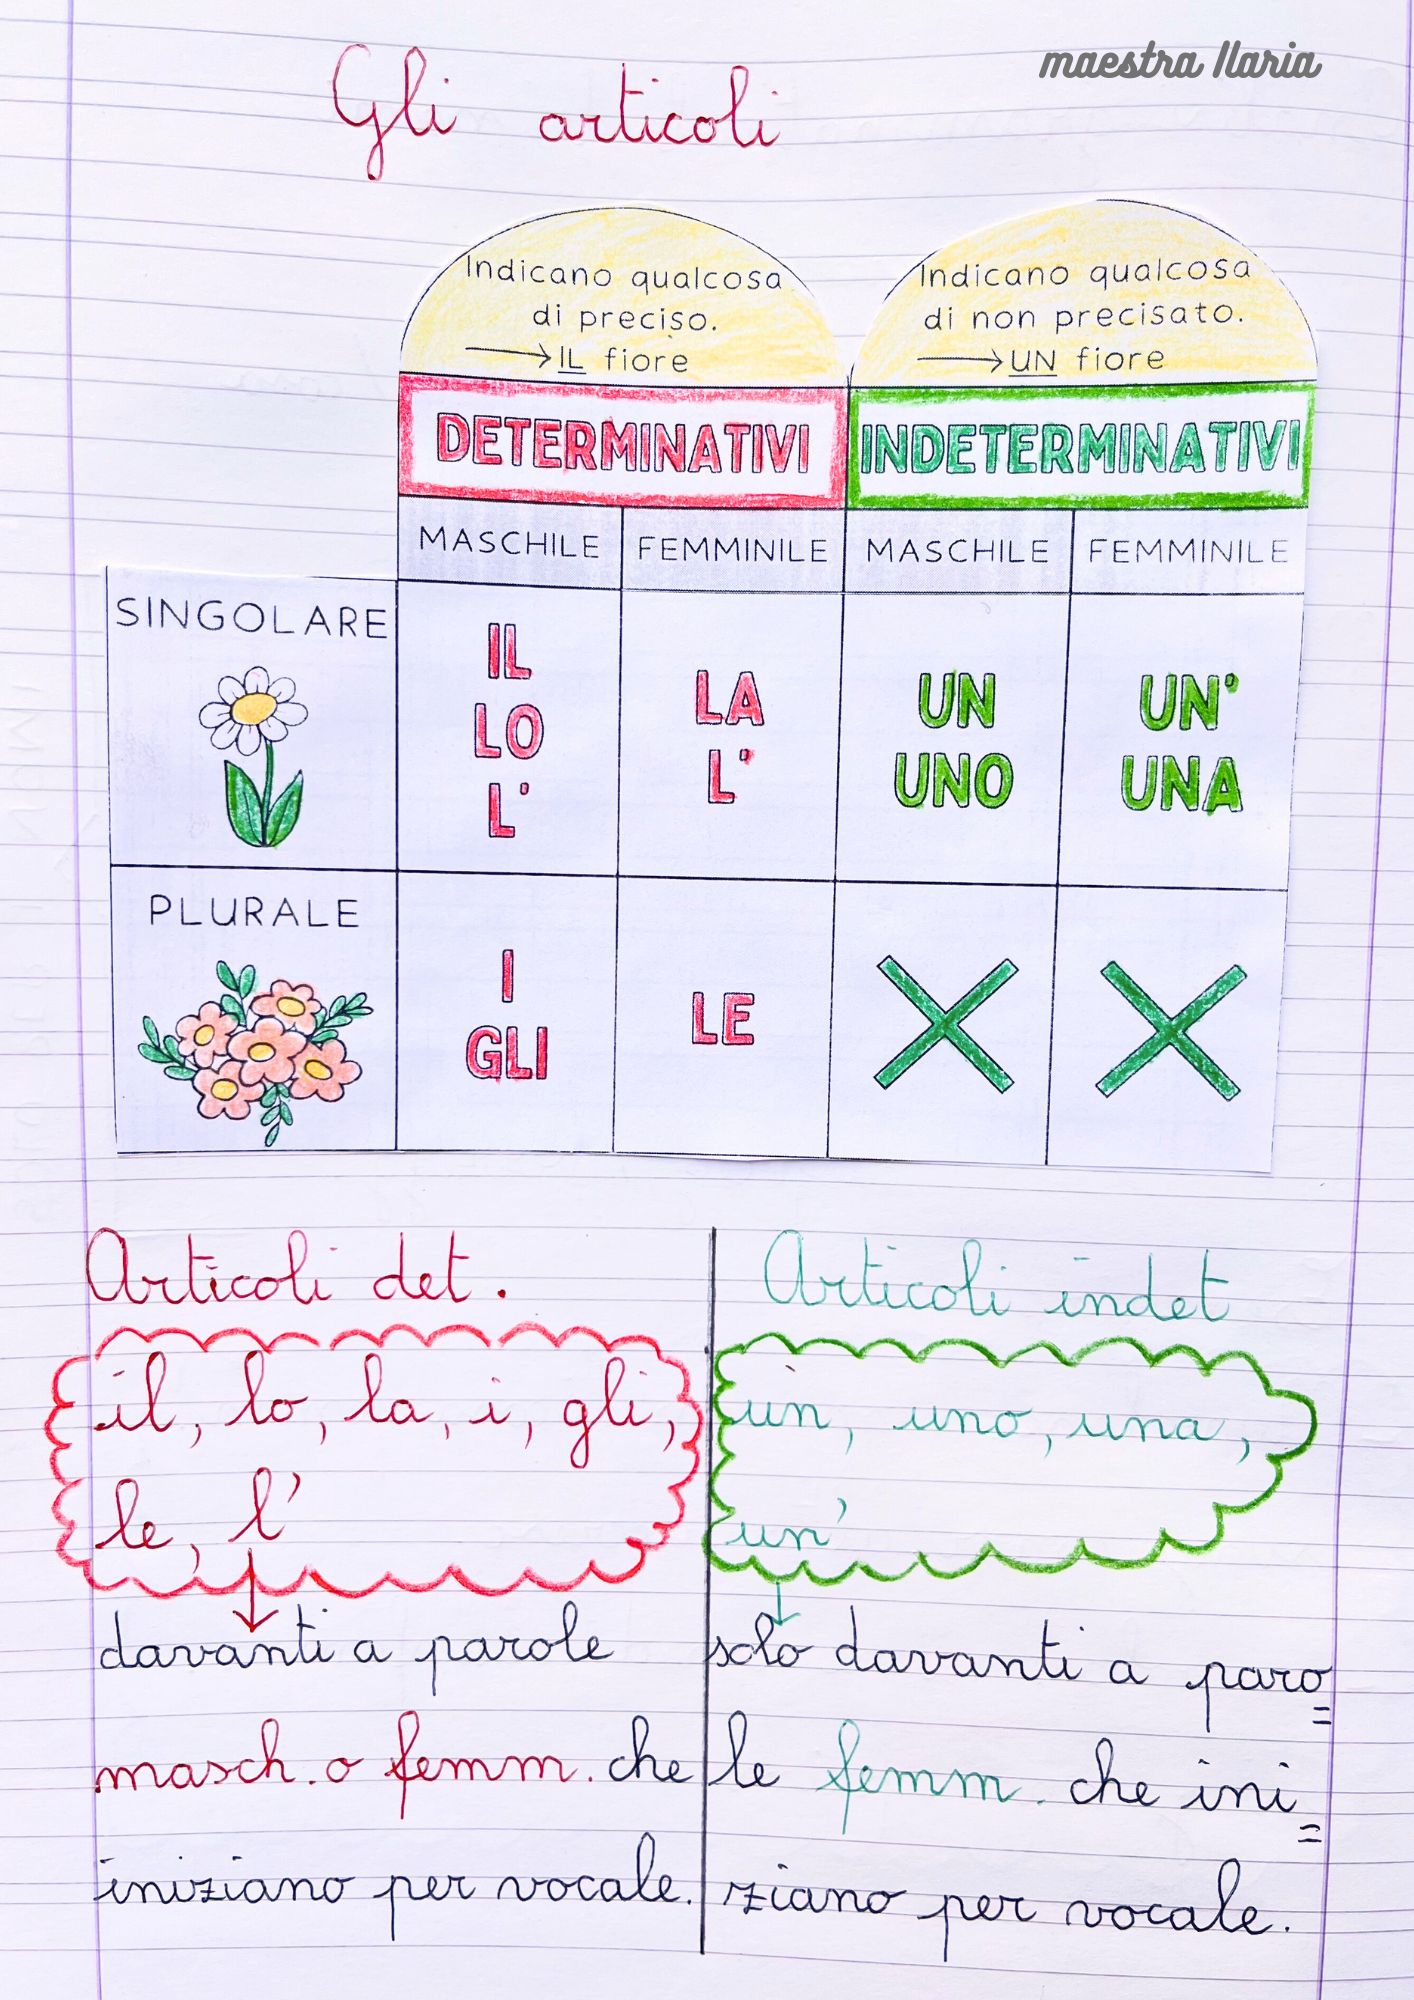 maestra Ilaria
Gli articoli
Indicano qualcosa
di preciso.
→ IL fiore
Indicano qualcosa
di non precisato.
→ UN fiore
DETERMINATIVI
INDETERMINATIVI
MASCHILE FEMMINILE MASCHILE FEMMINILE
SINGOLARE
IL
LO
L'
LA
L'
UN
UNO
UN'
UNA
PLURALE
I
GLI
LE
Articoli det.
il, lo, la, i, gli,
le, l'
davanti a parole
masch. o femm. che
iniziano per vocale.
Articoli indet
un, uno, una,
un'
solo davanti a paro=
le femm. che ini=
ziano per vocale.